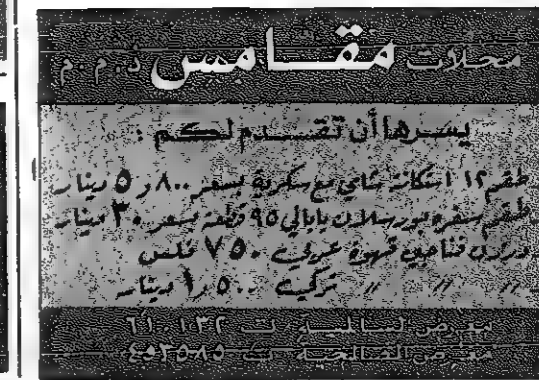 محلات مقامس ذ.م.م
يسرها أن تقدم لكم :
طقم ١٢ استكانة شاي مع سكرية بسعر ٨٠٠ر٥ دينار
طقم سفرة بورسلان ياباني ٩٥ قطعة بسعر ٣٠ دينار
درزن فناجين قهوة عربي ٧٥٠ فلس
〃 〃 〃 تركي ٥٠٠ر١ دينار
معرض السالمية ت ٦١٠١٣٢
معرض الفحيحيل ت